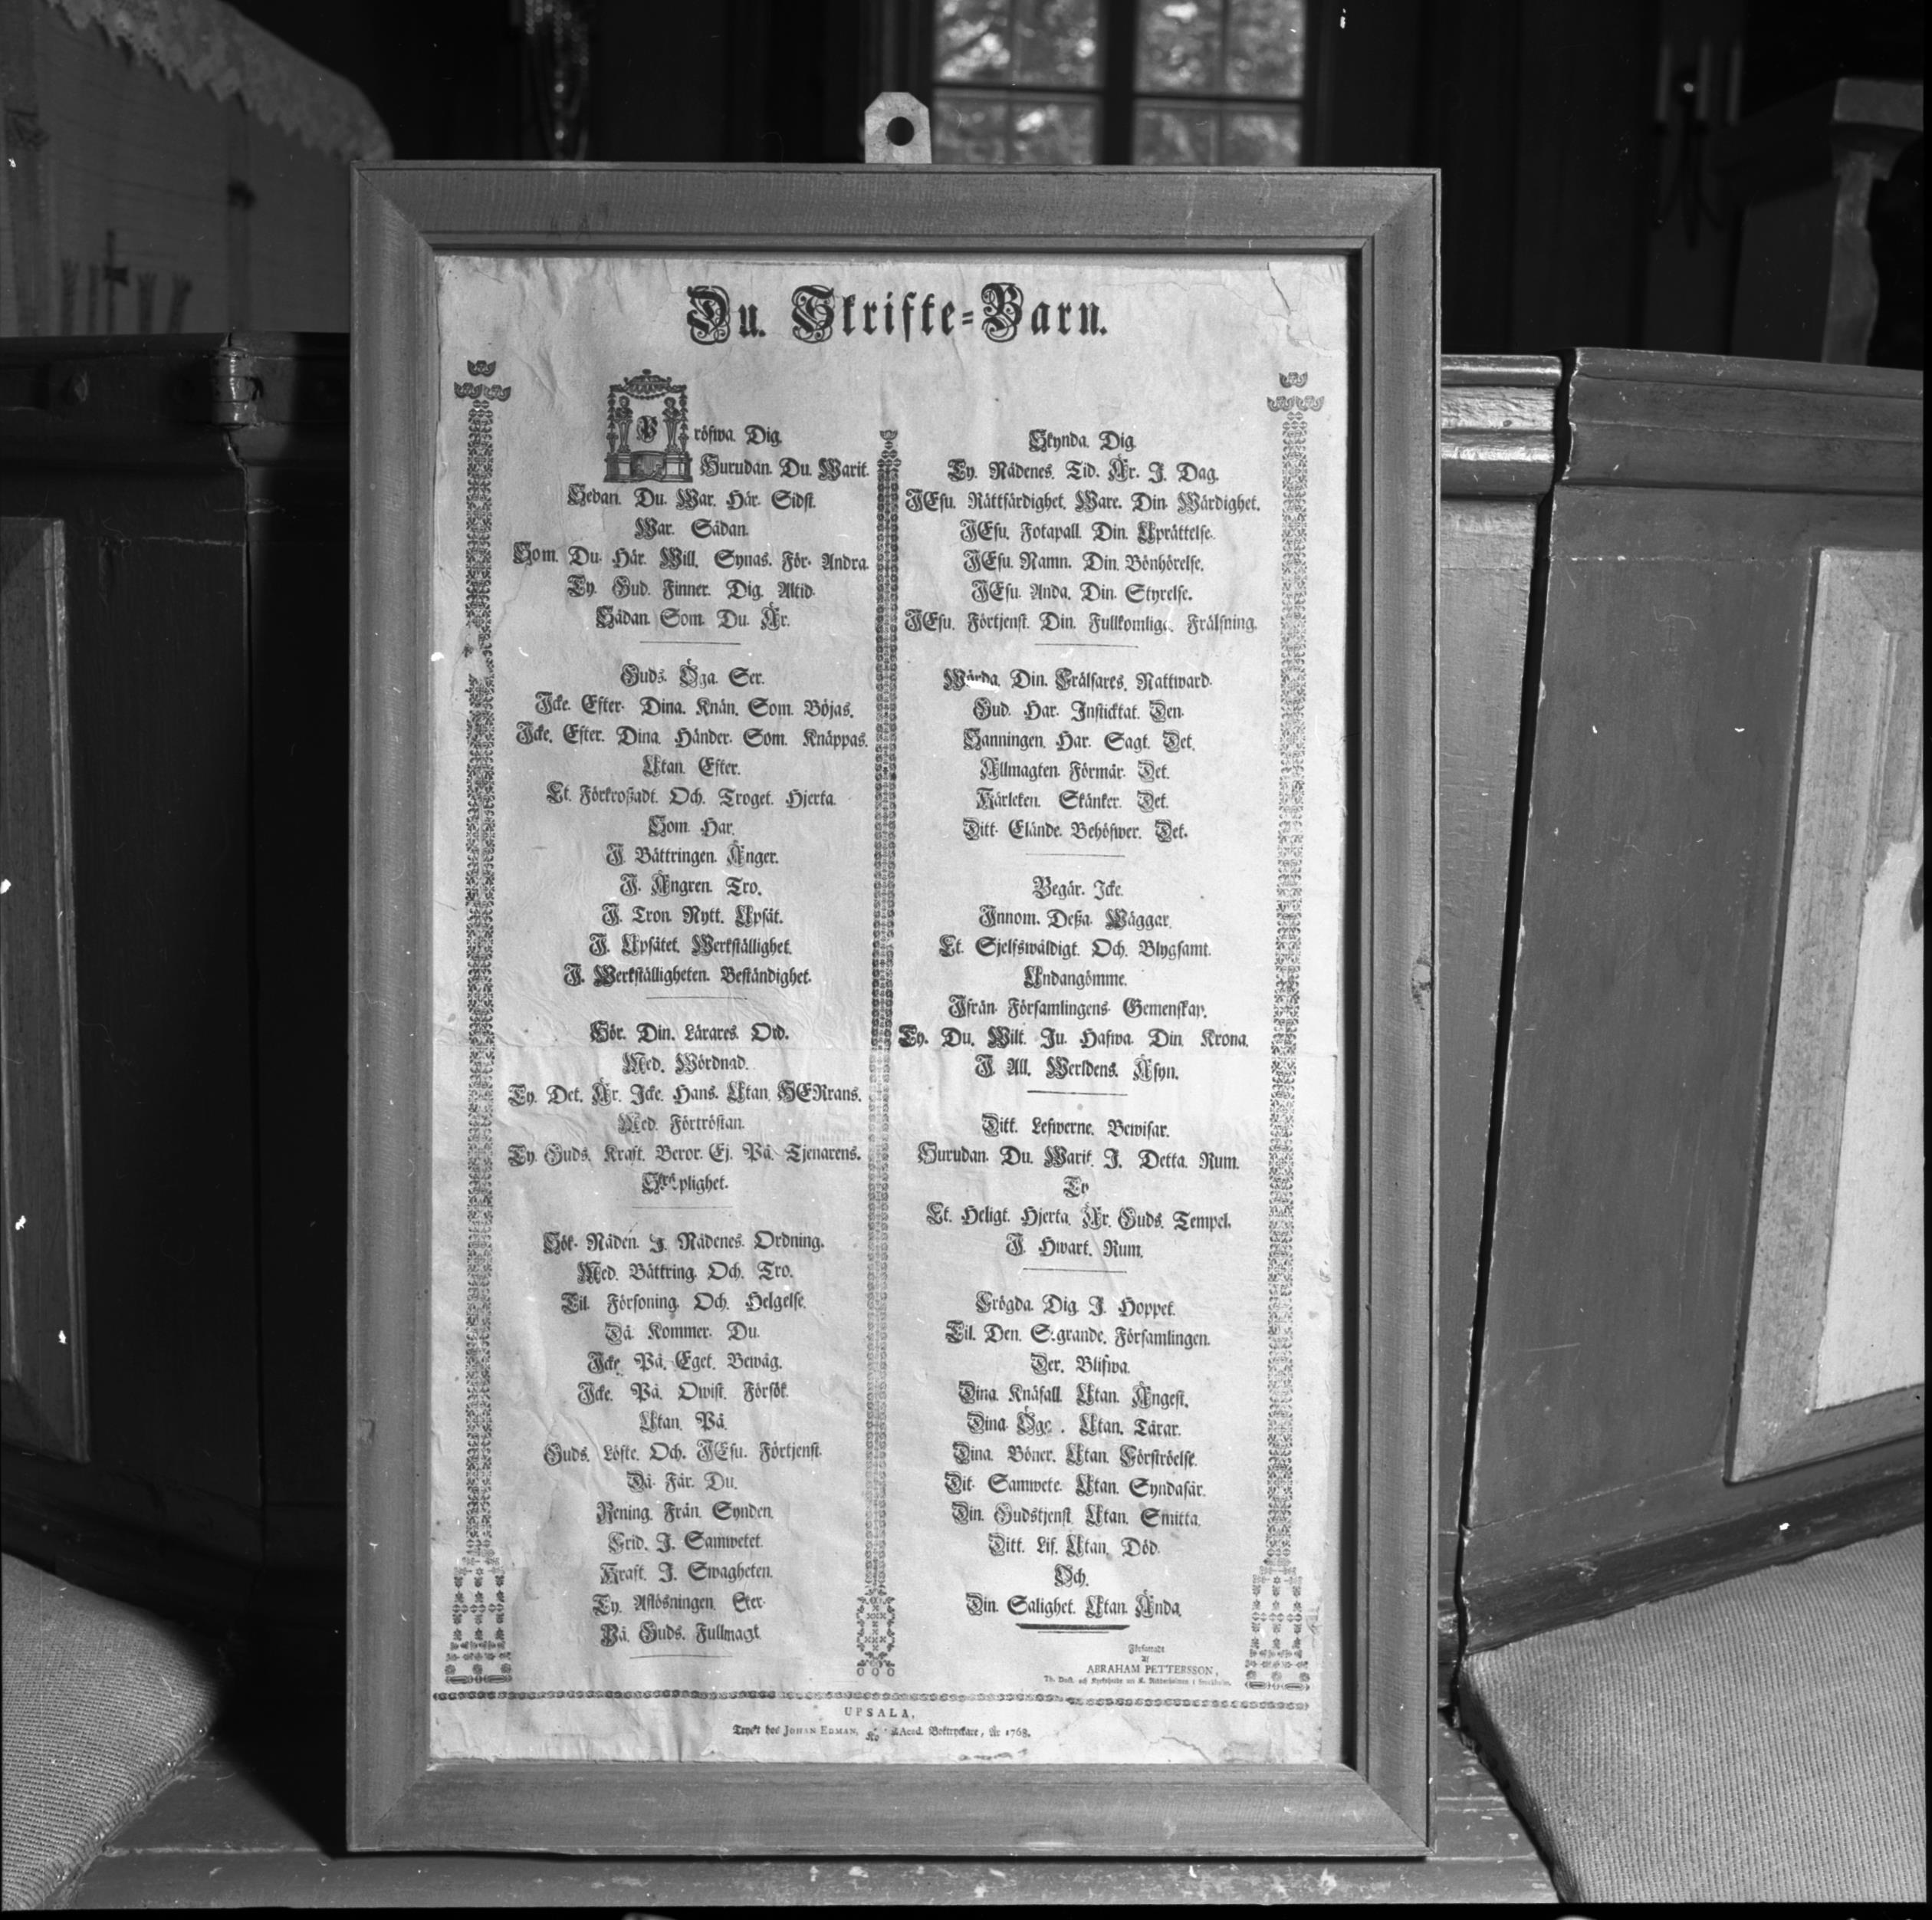 Du. Skrifte=Barn.
Pröfwa. Dig.
Hurudan. Du. Warit.
Sedan. Du. War. Här. Sidst.
War. Sådan.
Som. Du. Här. Will. Synas. För. Andra.
Ty. Gud. Finner. Dig. Altid.
Sådan. Som. Du. Är.
Guds. Öga. Ser.
Icke. Efter. Dina. Knän. Som. Böjas.
Icke. Efter. Dina. Händer. Som. Knäppas.
Utan. Efter.
Et. Förkroßadt. Och. Troget. Hjerta.
Som. Har.
I. Bättringen. Ånger.
I. Ångren. Tro.
I. Tron. Nytt. Upsåt.
I. Upsåtet. Werkställighet.
I. Werkställigheten. Beständighet.
Hör. Din. Lärares. Ord.
Med. Wördnad.
Ty. Det. Är. Icke. Hans. Utan. HERrans.
Med. Förtröstan.
Ty. Guds. Kraft. Beror. Ej. På. Tjenarens.
plighet.
Sök. Nåden. I. Nådenes. Ordning.
Med. Bättring. Och. Tro.
Til. Försoning. Och. Helgelse.
Då. Kommer. Du.
Icke. På. Eget. Bewåg.
Icke. På. Owist. Försök.
Utan. På.
Guds. Löfte. Och. JEsu. Förtjenst.
Då. Får. Du.
Rening. Från. Synden.
Frid. I. Samwetet.
Kraft. I. Swagheten.
Ty. Aflösningen. Sker.
På. Guds. Fullmagt.
Skynda. Dig.
Ty. Nådenes. Tid. Är. I. Dag.
JEsu. Rättfärdighet. Ware. Din. Wärdighet.
JEsu. Fotapall. Din. Uprättelse.
JEsu. Namn. Din. Bönhörelse.
JEsu. Anda. Din. Styrelse.
JEsu. Förtjenst. Din. Fullkomliga. Frälsning.
Wörda. Din. Frälsares. Nattward.
Gud. Har. Insticktat. Den.
Sanningen. Har. Sagt. Det.
Allmagten. Förmår. Det.
Kärleken. Skänker. Det.
Ditt. Elände. Behöfwer. Det.
Begär. Icke.
Innom. Deßa. Wäggar.
Et. Sjelfswåldigt. Och. Blygsamt.
Undangömme.
Ifrån. Församlingens. Gemenskap.
Ty. Du. Wilt. Ju. Hafwa. Din. Krona.
I. All. Werldens. Åsyn.
Ditt. Lefwerne. Bewisar.
Hurudan. Du. Warit. I. Detta. Rum.
Ty
Et. Heligt. Hjerta. Är. Guds. Tempel.
I. Hwart. Rum.
Frögda. Dig. I. Hoppet.
Til. Den. Segrande. Församlingen.
Der. Blifwa.
Dina. Knäfall. Utan. Ångest.
Dina. Utan. Tårar.
Dina. Böner. Utan. Förströelse.
Dit. Samwete. Utan. Syndasår.
Din. Gudstjenst. Utan. Smitta.
Ditt. Lif. Utan. Död.
Och.
Din. Salighet. Utan. Ända.
Författade
af
ABRAHAM PETTERSSON,
Th. Doct. och Kyrkoherde wid K. Riddarholmen i Stockholm.
UPSALA,
Tryckt hos JOHAN EDMAN, Acad. Boktryckare, År 1768.